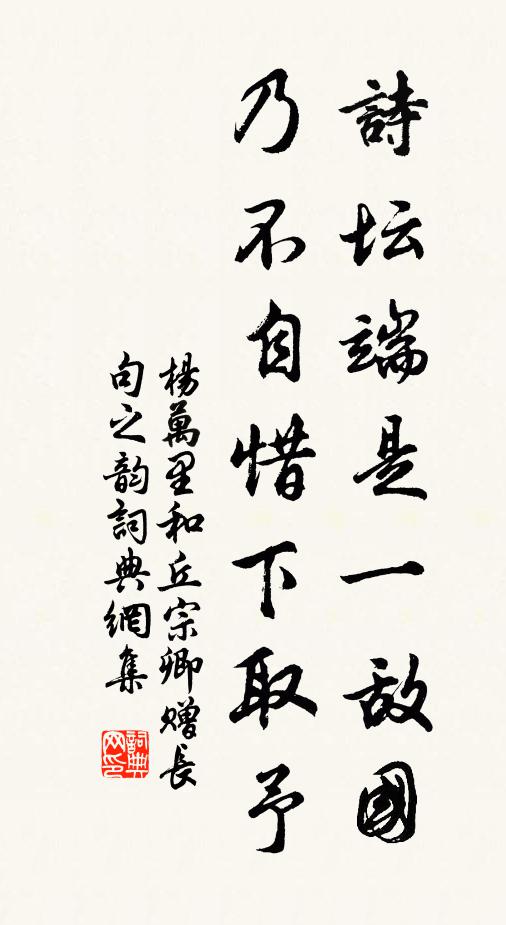 詩坛端是一敌國
乃不自惜下取予
楊萬里和丘宗卿赠長
句之韵詞典網集
詞典
网印